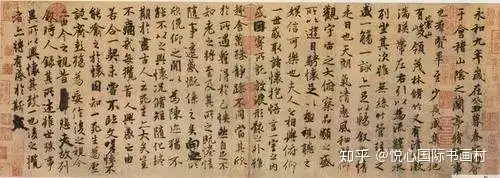 永和九年歲在癸丑暮春之初會
于會稽山陰之蘭亭脩稧事
也群賢畢至少長咸集此地
有崇山峻領茂林脩竹又有清流激
湍暎帶左右引以為流觴曲水
列坐其次雖無絲竹管弦之
盛一觴一詠亦足以暢叙幽情
是日也天朗氣清惠風和暢仰
觀宇宙之大俯察品類之盛
所以遊目騁懷足以極視聽之
娛信可樂也夫人之相與俯仰
一世或取諸懷抱悟言一室之內
或因寄所託放浪形骸之外雖
趣舍萬殊靜躁不同當其欣
於所遇蹔得於己怏然自足不
知老之將至及其所之既惓情
隨事遷感慨係之矣向之所
欣俛仰之間以為陳迹猶不
能不以之興懷況脩短隨化終
期於盡古人云死生亦大矣豈
不痛哉每攬昔人興感之由
若合一契未嘗不臨文嗟悼不
能喻之於懷固知一死生為虛
誕齊彭殤為妄作後之視今
亦由今之視昔悲夫故列
叙時人錄其所述雖世殊事
異所以興懷其致一也後之攬
者亦將有感於斯文
知乎 @悦心国际书画村